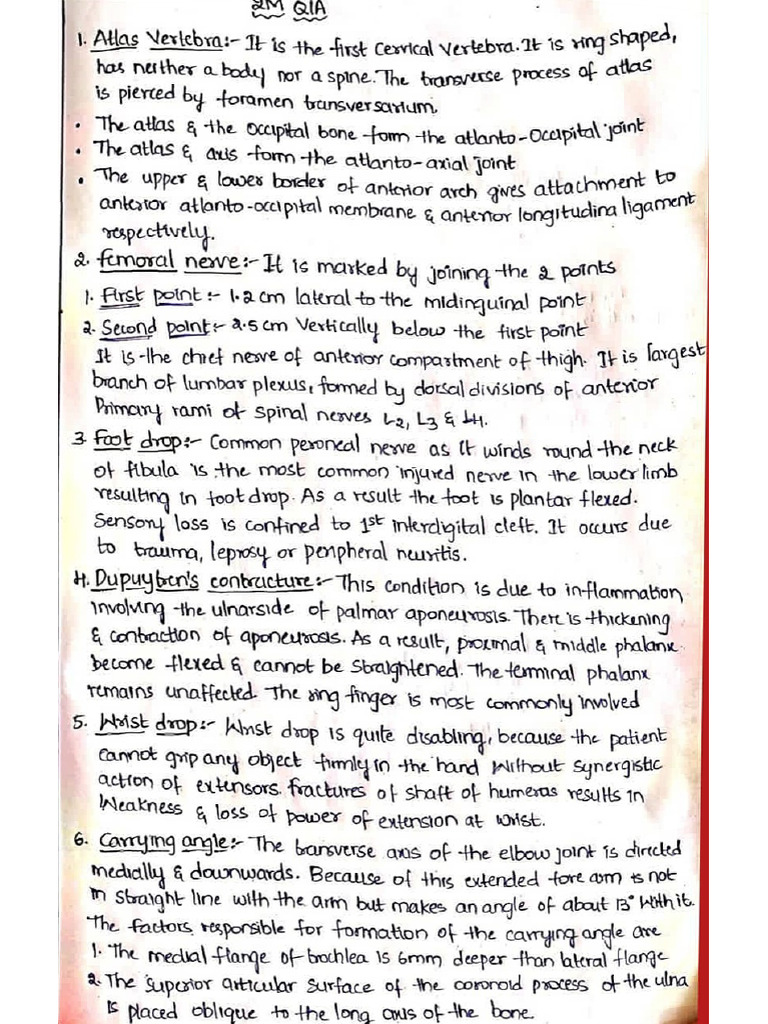 2M Q1A
1. Atlas Vertebra:- It is the first Cervical Vertebra. It is ring shaped,
has neither a body nor a spine. The transverse process of atlas
is pierced by foramen transversarium.
• The atlas & the occipital bone form the atlanto-occipital joint
• The atlas & axis form the atlanto-axial joint
• The upper & lower border of anterior arch gives attachment to
anterior atlanto-occipital membrane & anterior longitudina ligament
respectively.
2. femoral nerve:- It is marked by joining the 2 points
1. First point:- 1.2 cm lateral to the midinguinal point
2. Second point:- 2.5 cm Vertically below the first point
It is the chief nerve of anterior compartment of thigh. It is largest
branch of lumbar plexus, formed by dorsal divisions of anterior
Primary rami of spinal nerves L2, L3 & L4.
3. Foot drop:- Common peroneal nerve as it winds round the neck
of fibula is the most common injured nerve in the lower limb
resulting in foot drop. As a result the foot is plantar flexed.
Sensory loss is confined to 1st interdigital cleft. It occurs due
to trauma, leprosy or peripheral neuritis.
4. Dupuyten's contructure:- This condition is due to inflammation
involving the ulnarside of palmar aponeurosis. There is thickening
& contraction of aponeurosis. As a result, proximal & middle phalanx
become flexed & cannot be straightened. The terminal phalanx
remains unaffected. The ring finger is most commonly involved
5. Wrist drop:- Wrist drop is quite disabling, because the patient
cannot grip any object firmly in the hand without synergistic
action of extensors. fractures of shaft of humeras results in
Weakness & loss of power of extension at wrist.
6. Carrying angle:- The transverse axis of the elbow joint is directed
medially & downwards. Because of this extended fore arm is not
in straight line with the arm but makes an angle of about 13° with it.
The factors responsible for formation of the carrying angle are
1. The medial flange of trochlea is 6mm deeper than lateral flange
2. The superior articular surface of the coronoid process of the ulna
is placed oblique to the long axis of the bone.